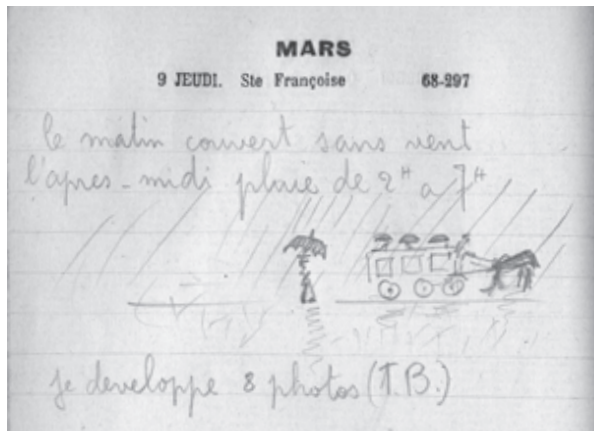 MARS
9 JEUDI. Ste Françoise 68-297
le matin couvert sans vent
l'apres-midi pluie de 2H a 7H
je developpe 8 photos (T.B.)